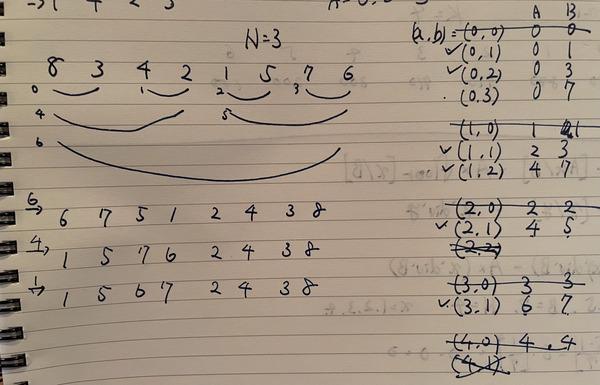 N=3
8 3 4 2 1 5 7 6
0 1 2 3
4 5
6
6→ 6 7 5 1 2 4 3 8
4→ 1 5 7 6 2 4 3 8
1→ 1 5 6 7 2 4 3 8
A B
(a,b)=(0,0) 0 0
✓(0,1) 0 1
✓(0,2) 0 3
(0,3) 0 7
(1,0) 1 1
✓(1,1) 2 3
✓(1,2) 4 7
(2,0) 2 2
✓(2,1) 4 5
(2,2)
(3,0) 3 3
✓(3,1) 6 7
(4,0) 4 4
(4,1)